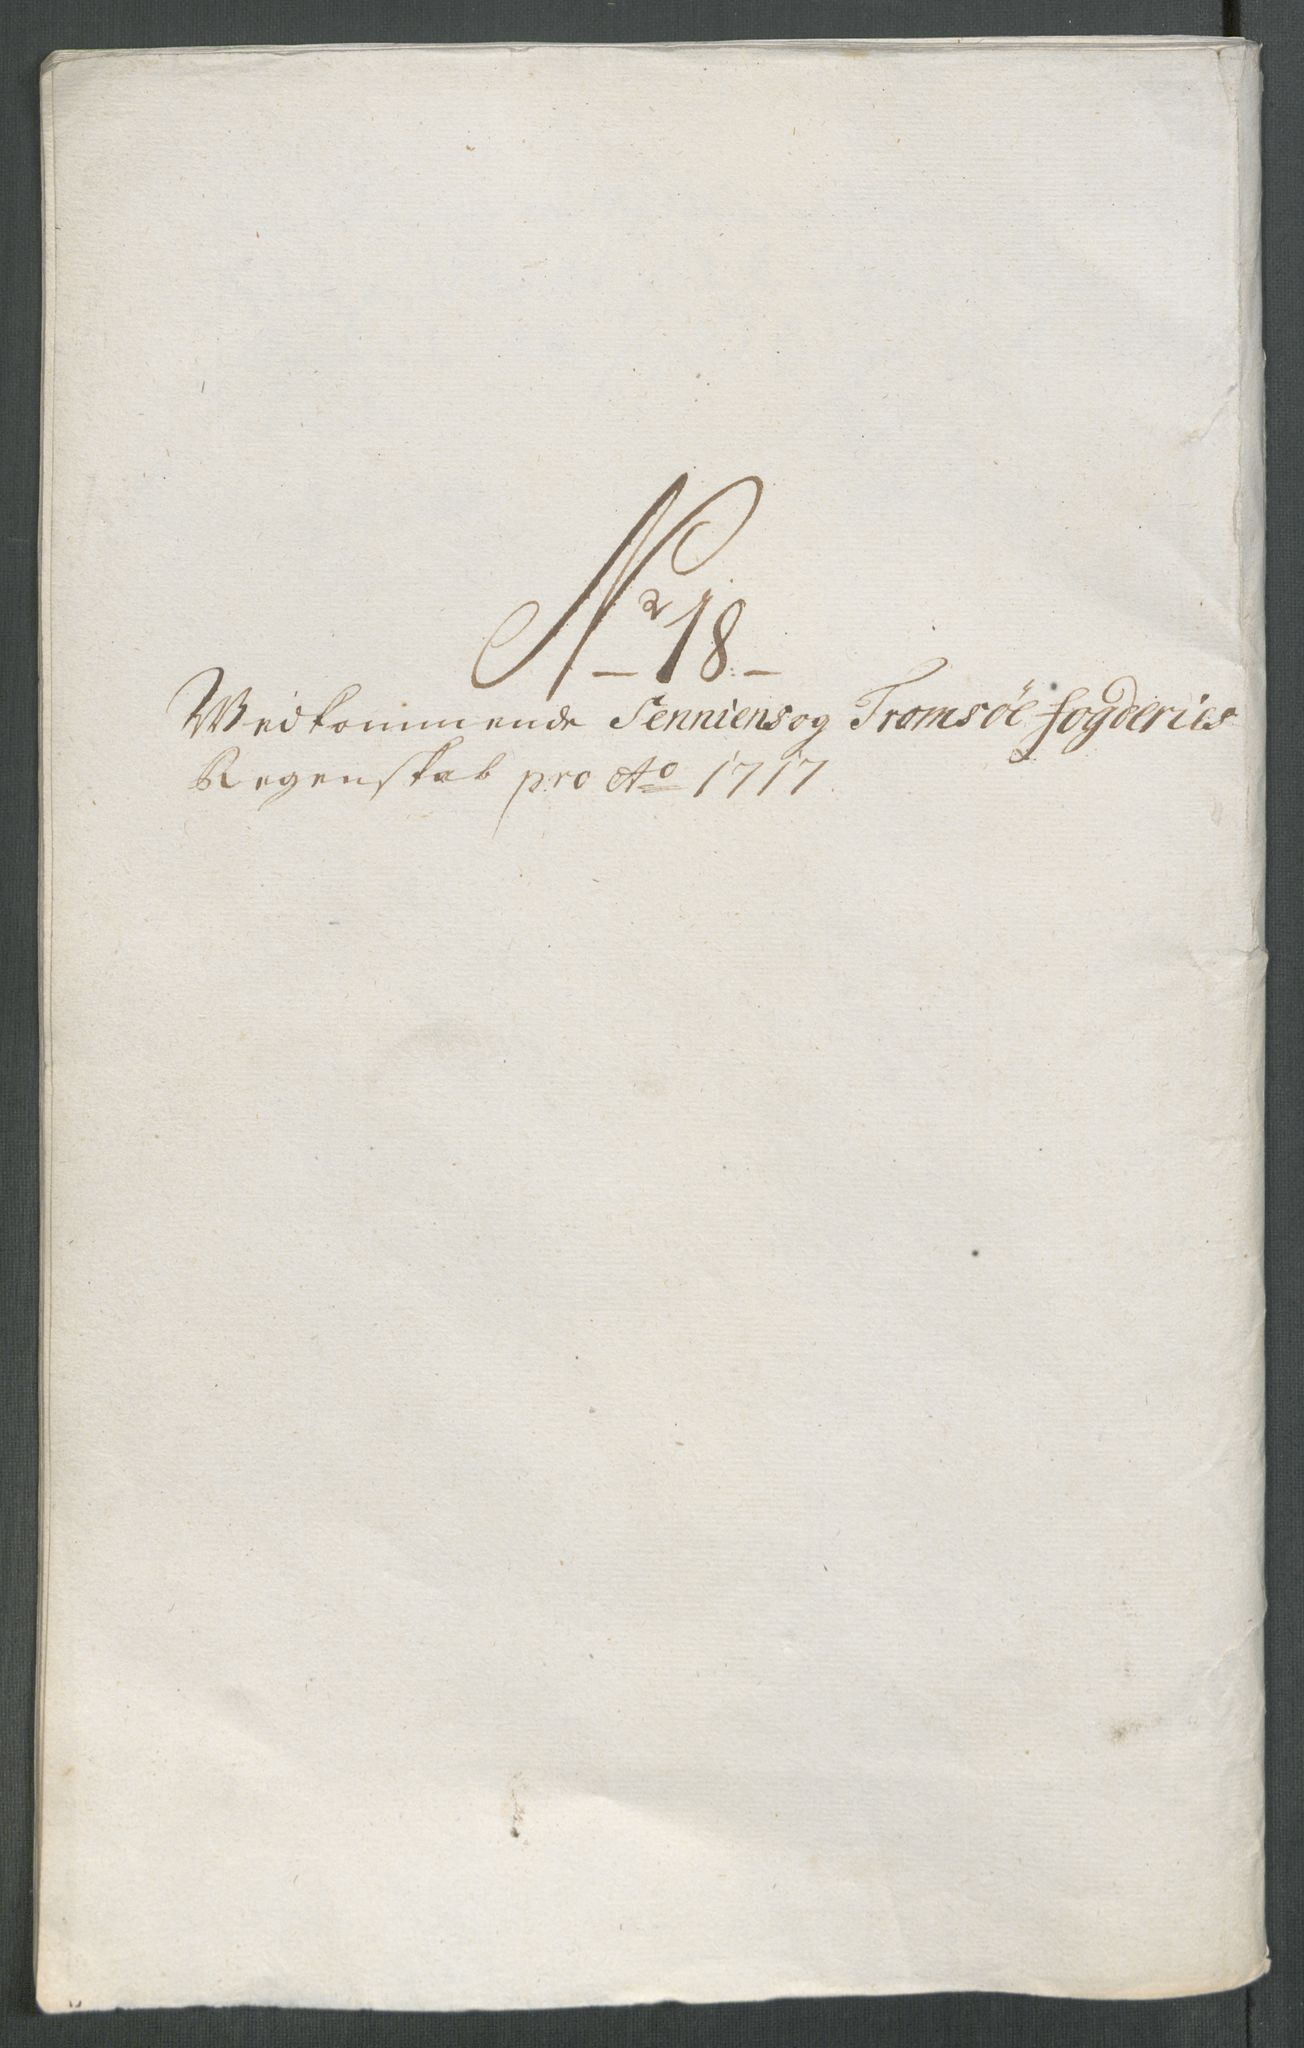 Nr 18
Wedkommende Senniens og Tromsöe fogderies
Regenskab pro Ao 1717